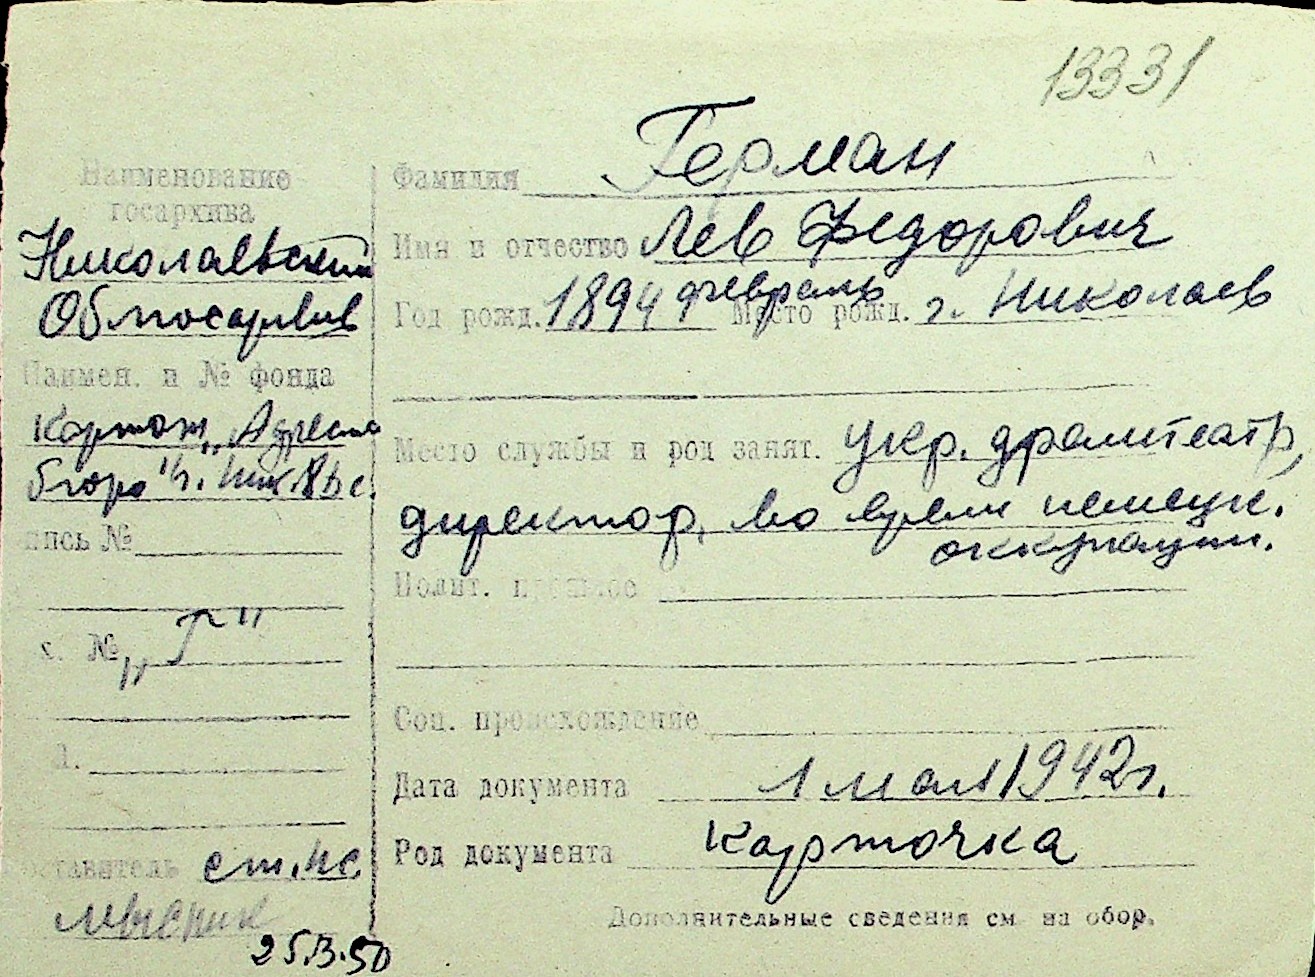 13331
Наименование
госархива
Николаевский
Облгосархив
Наимен. и № фонда
Картот. „Адресно
бюро"
пись №
х. № „Г"
л.
оставитель ст. нс
25.3.50
Фамилия Герман
Имя и отчество Лев Федорович
Год рожд. 1894 февраль Место рожд. г. Николаев
Место службы и род занят. Укр. драмтеатр,
директор, во время немецк.
оккупации.
Полит. прошлое
Соц. происхождение
Дата документа 1 мая 1942 г.
Род документа Карточка
Дополнительные сведения см на обор.